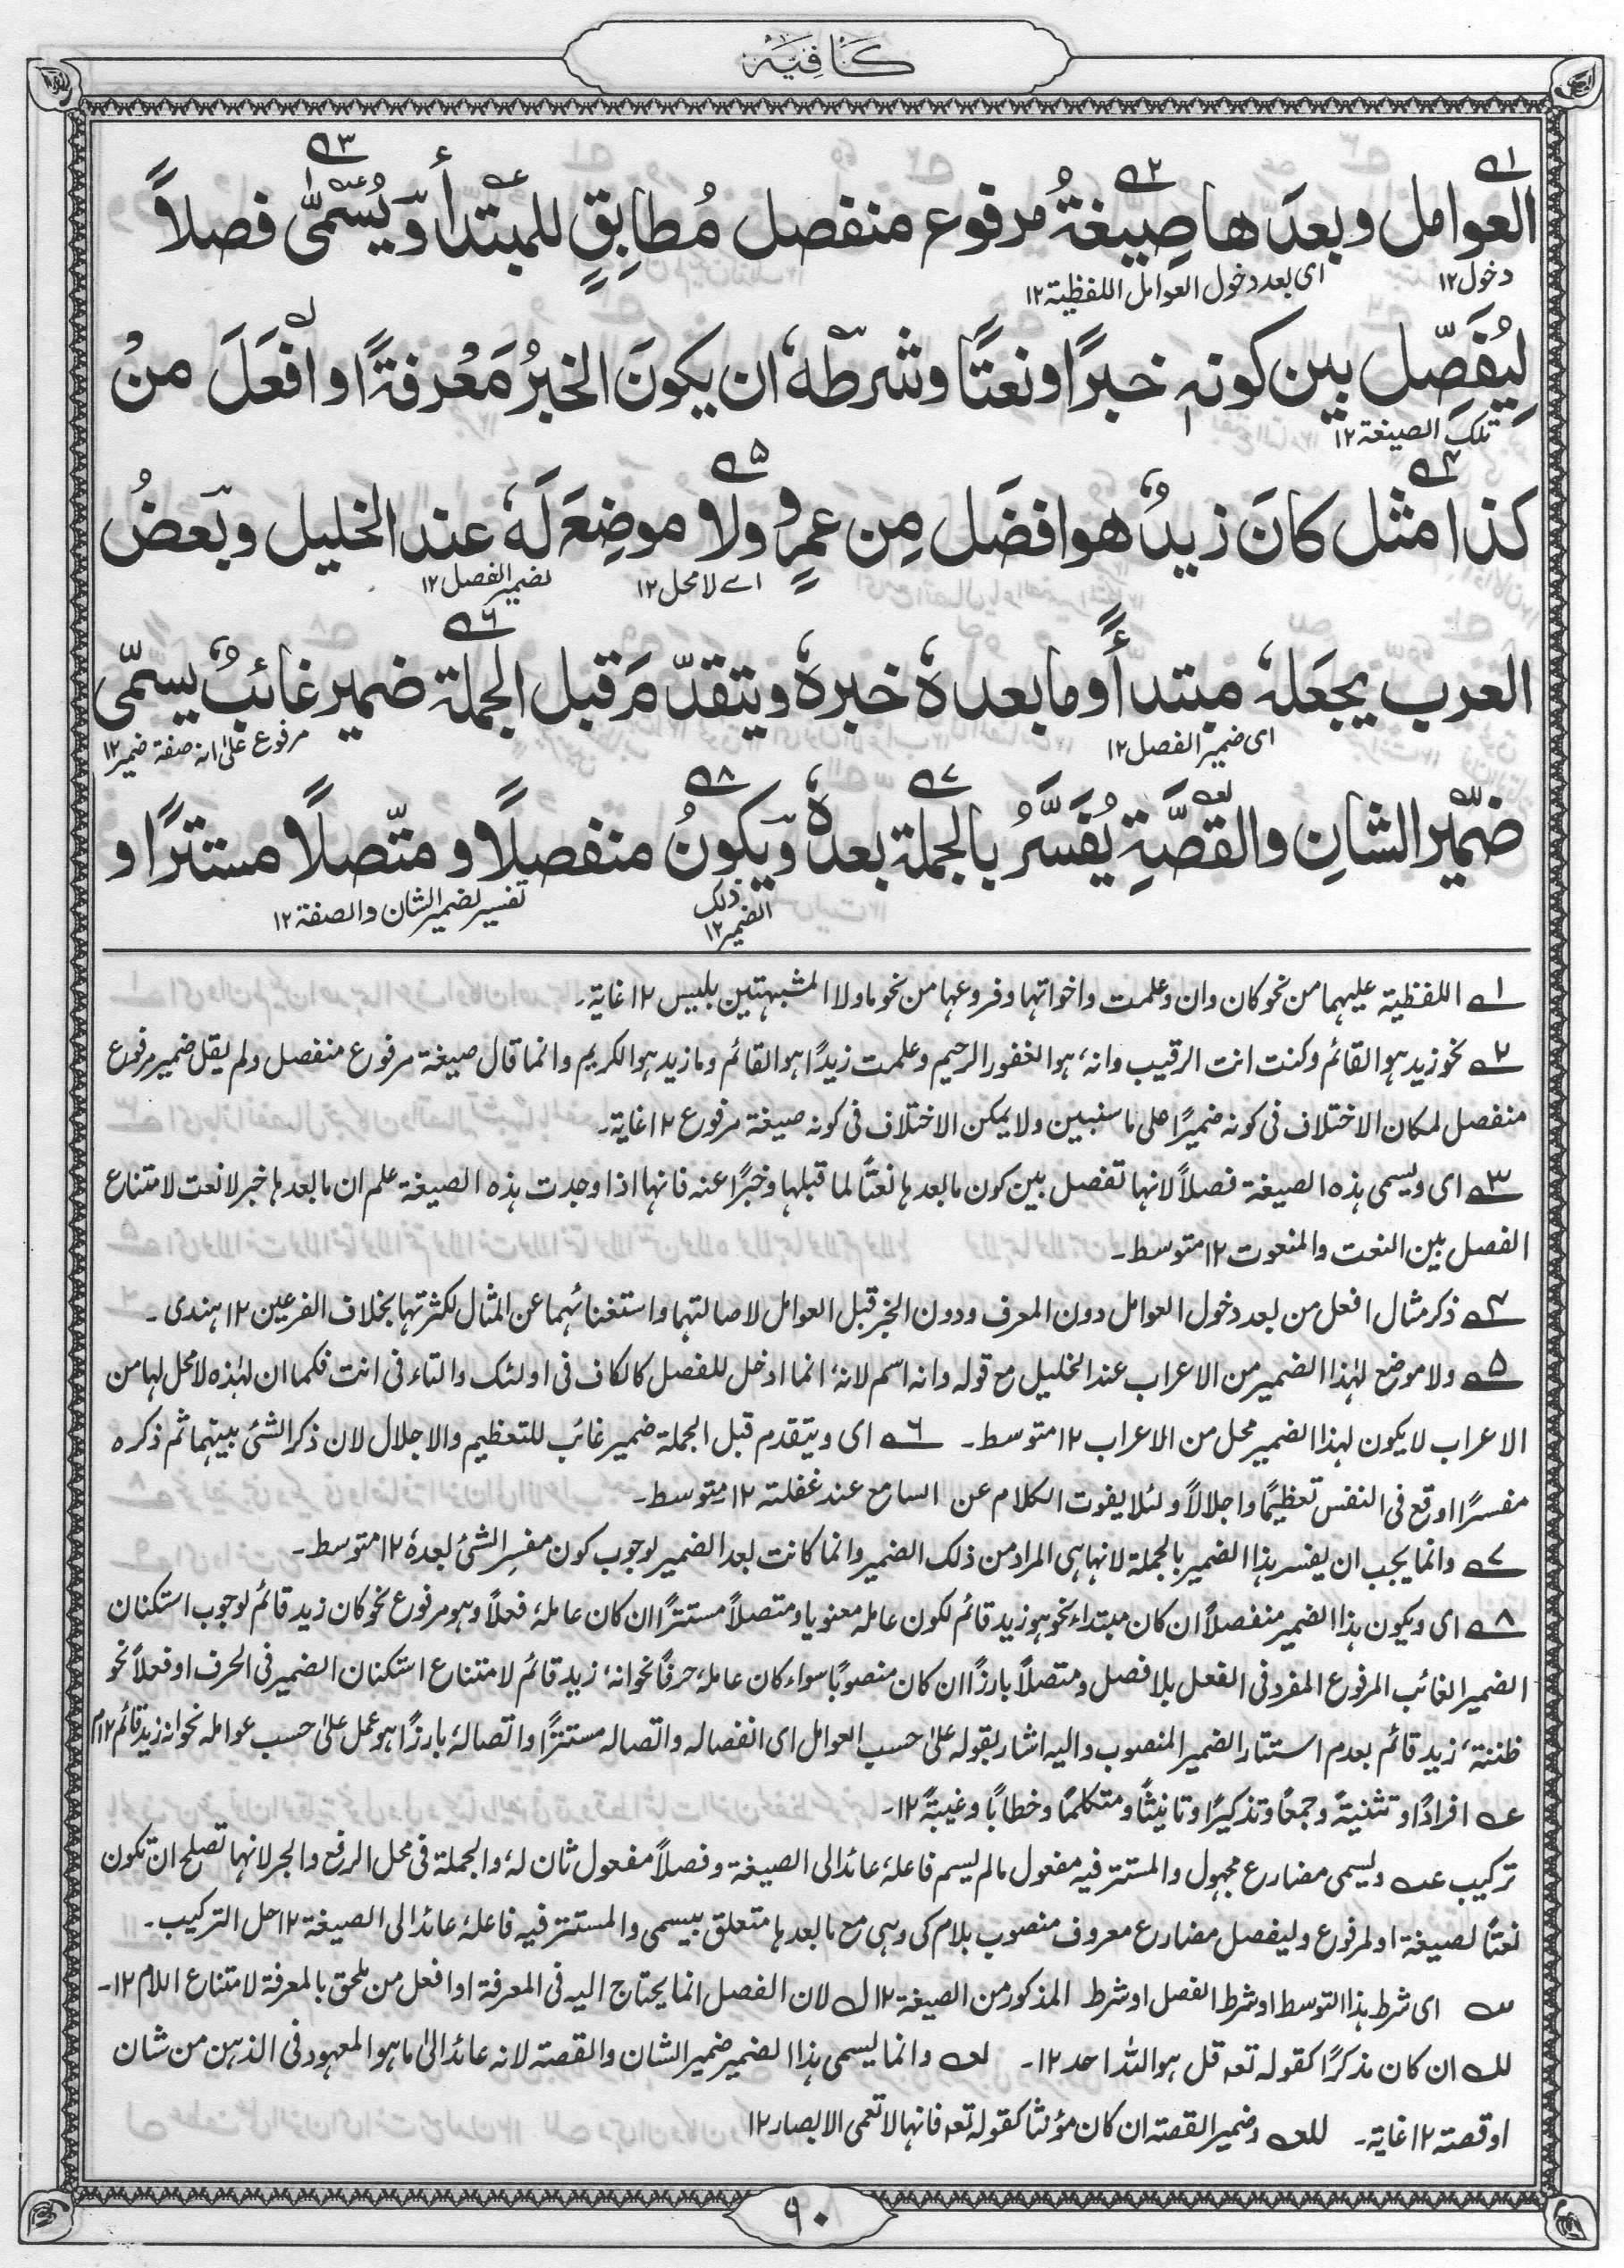 كَافِيَہ
العوامل وبعدَها صِيغةُ مرفوع منفصل مُطابِقٍ للمبتدأ ويُسمّٰى فصلاً
دخول١٢ اى بعد دخول العوامل اللفظية١٢
لِيُفَصِّل بين كونہٖ خبرًا ونعتًا وشرطه ان يكونَ الخبرُ مَعْرفةً او افْعَلَ منْ
تلك الصيغة١٢
كذا مثل كانَ زيدٌ هو افضَل مِن عمرٍو ولا موضِعَ لَهٗ عند الخليل وبعضُ
اے لا محل١٢ لضمير الفصل١٢
العرب يجعَلهٗ مبتدأً وما بعدهٗ خبرهٗ ويتقدّمَ قبل الجملة ضمير غائبٌ يسمّى
اى ضمير الفصل١٢ مرفوع على انه صفة ضمير١٢
ضميرَ الشانِ والقصَّةِ يُفَسَّرُ بالجملة بعدهٗ ويكونُ منفصلًا ومتّصلًا مستترًا و
ذلك الضمير١٢ تفسير لضمير الشان والصفة١٢
١ اللفظية عليهما من نحو كان وان وعلمت واخواتها وفروعها من نحو ما ولا المشبهتين بليس ١٢ غاية۔
٢ نحو زيد هو القائم وكنت انت الرقيب وانهٗ هو الغفور الرحيم وعلمت زيدًا هو القائم وما زيد هو الكريم وانما قال صيغة مرفوع منفصل ولم يقل ضمير مرفوع
منفصل لمكان الاختلاف فى كونه ضميرًا على ما سنبين ولا يمكن الاختلاف فى كونه صيغة مرفوع ١٢ غاية۔
٣ اى ويسمى هذه الصيغة فصلاً لانها تفصل بين كون ما بعدها نعتًا لما قبلها وخبرًا عنه فانها اذا وجدت هذه الصيغة علم ان ما بعدها خبر لا نعت لامتناع
الفصل بين النعت والمنعوت ١٢ متوسط۔
٤ ذكر مثال افعل من بعد دخول العوامل دون المعرف ودون الخبر قبل العوامل لاصالتهما واستغنائهما عن المثال لكثرتها بخلاف الفرعين ١٢ هندى۔
٥ ولا موضع لهٰذا الضمير من الاعراب عند الخليل مع قوله وانه اسم لانهٗ انما ادخل للفصل كالكاف فى اولئك والتاء فى انت فكما ان لهٰذه لا محل لها من
الاعراب لا يكون لهذا الضمير محل من الاعراب ١٢ متوسط۔ ٦ اى ويتقدم قبل الجملة ضمير غائب للتعظيم والاجلال لان ذكر الشئ مبهما ثم ذكره
مفسرًا اوقع فى النفس تعظيمًا واجلالاً ولئلا يفوت الكلام عن السامع عند غفلته ١٢ متوسط۔
٧ وانما يجب ان يفسر هذا الضمير بالجملة لانها هى المراد من ذلك الضمير وانما كانت بعد الضمير لوجوب كون مفسر الشئ بعدهٗ ١٢ متوسط۔
٨ اى ويكون هذا الضمير منفصلاً ان كان مبتداء نحو هو زيد قائم لكون عامله معنويا ومتصلاً مستترًا ان كان عاملهٗ فعلاً وهو مرفوع نحو كان زيد قائم لوجوب استكنان
الضمير الغائب المرفوع المفرد فى الفعل بلا فصل ومتصلاً بارزًا ان كان منصوبًا سواء كان عاملهٗ حرفًا نحو انهٗ زيد قائم لامتناع استكنان الضمير فى الحرف او فعلاً نحو
ظننتهٗ زيد قائم بعدم استتار الضمير المنصوب واليه اشار بقوله علىٰ حسب العوامل اى انفصاله واتصاله مستترًا واتصالهٗ بارزًا هو عمل علىٰ حسب عوامله نحو انه زيد قائم ١٢م
عہ افرادًا وتثنيةً وجمعًا وتذكيرًا وتانيثًا ومتكلمًا وخطابًا وغيبةً ١٢۔
تركيب عہ ويسمى مضارع مجهول والمستتر فيه مفعول ما لم يسم فاعلهٗ عائد الى الصيغة وفصلاً مفعول ثان لهٗ والجملة فى محل الرفع والجر لانها تصلح ان تكون
نعتًا لصيغة او لمرفوع وليفصل مضارع معروف منصوب بلام كى وهى مع ما بعدها متعلق بيسمى والمستتر فيه فاعلهٗ عائد الى الصيغة ١٢ حل التركيب۔
س اى شرط هذا التوسط او شرط الفصل او شرط المذكور من الصيغة ١٢ ل لان الفصل انما يحتاج اليه فى المعرفة او افعل من ملحق بالمعرفة لامتناع اللام ١٢۔
للہ ان كان مذكرًا كقوله تعہ قل هو اللّٰه احد ١٢۔ لہ وانما يسمى هذا الضمير ضمير الشان والقصة لانه عائد الىٰ ما هو المعهود فى الذهن من شان
او قصة ١٢ غاية۔ للعہ وضمير القصة ان كان مؤنثا كقوله تعہ فانها لا تعمى الابصار ١٢
٩٠